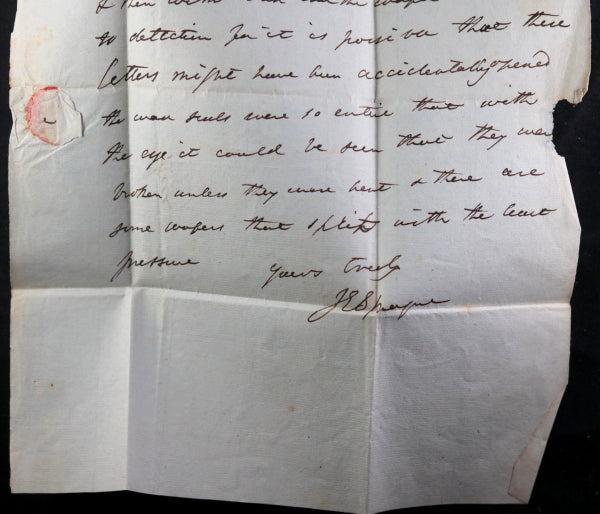 & then
to detection for it is possible that these
letters might have been accidentally opened
the wax seals were so entire that with
the eye it could be seen that they were
broken unless they were bent & there are
some wafers that split with the least
pressure
Yours truly
J E Sprague